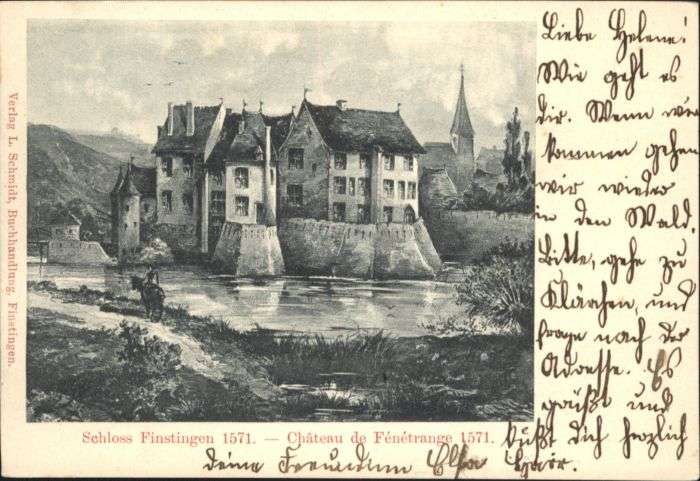 Liebe Helene!
Wie geht es
dir. Wenn wir
kommen gehen
wir wieder
in den Wald.
Bitte, gehe zu
Klärchen, und
frage nach der
Adresse. Es
grüßt und
küßt Dich herzlich
deine Freundinn Elsa
Verlag L. Schmidt, Buchhandlung, Finstingen.
Schloss Finstingen 1571. — Château de Fénétrange 1571.